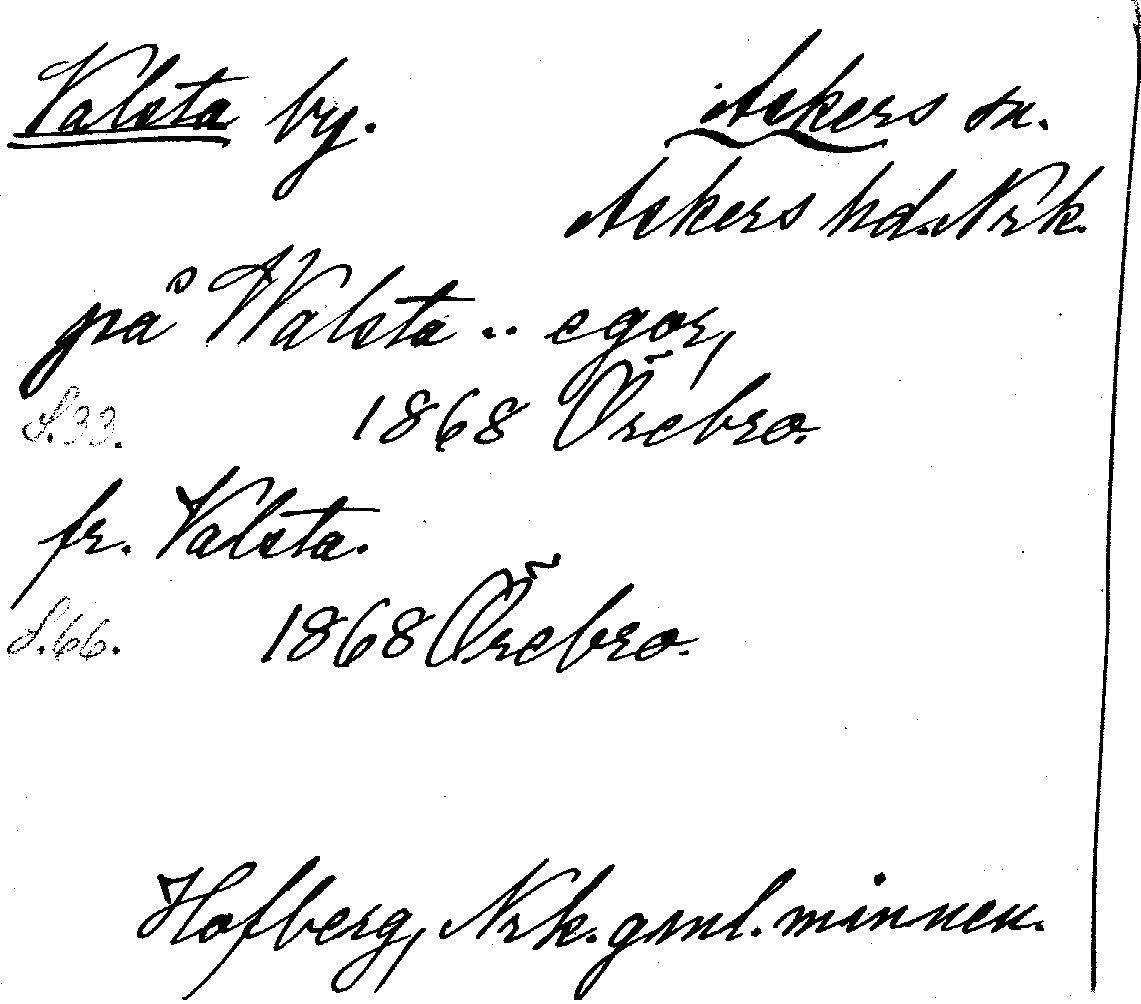 Valsta by. Askers sn.
Askers hd. Nrk.
på Walsta .. egor,
S.33. 1868 Örebro.
fr. Valsta.
S.66. 1868 Örebro.
Hofberg, Nrk. gml. minnen.